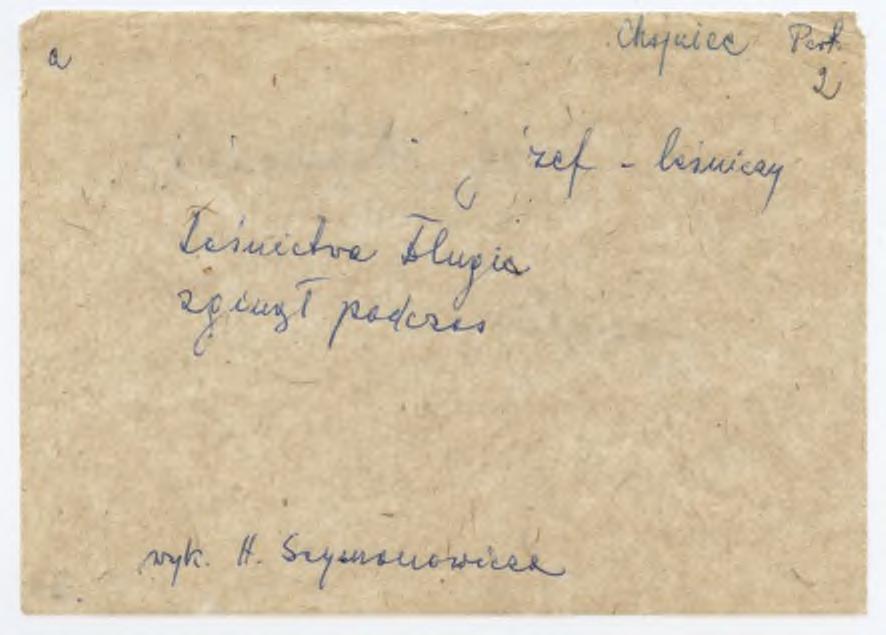 a
Chojnice Park
2
ózef - leśniczy
Leśnictwa Długie
zginął podczas
wyk. H. Szymanowicza